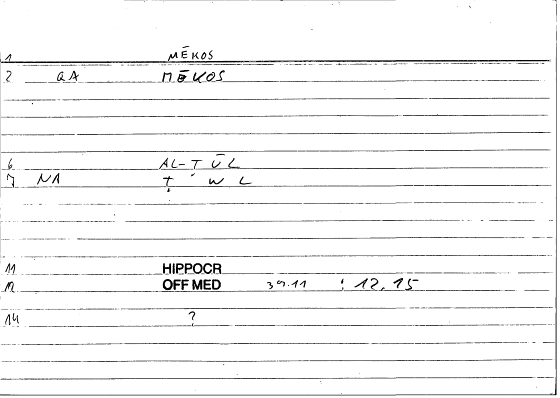 1 MĒKOS
2 GA MĒKOS
6 AL-ṬŪL
7 NA Ṭ W L
11 HIPPOCR
12 OFF MED 39.11 : 12,15
14 ?